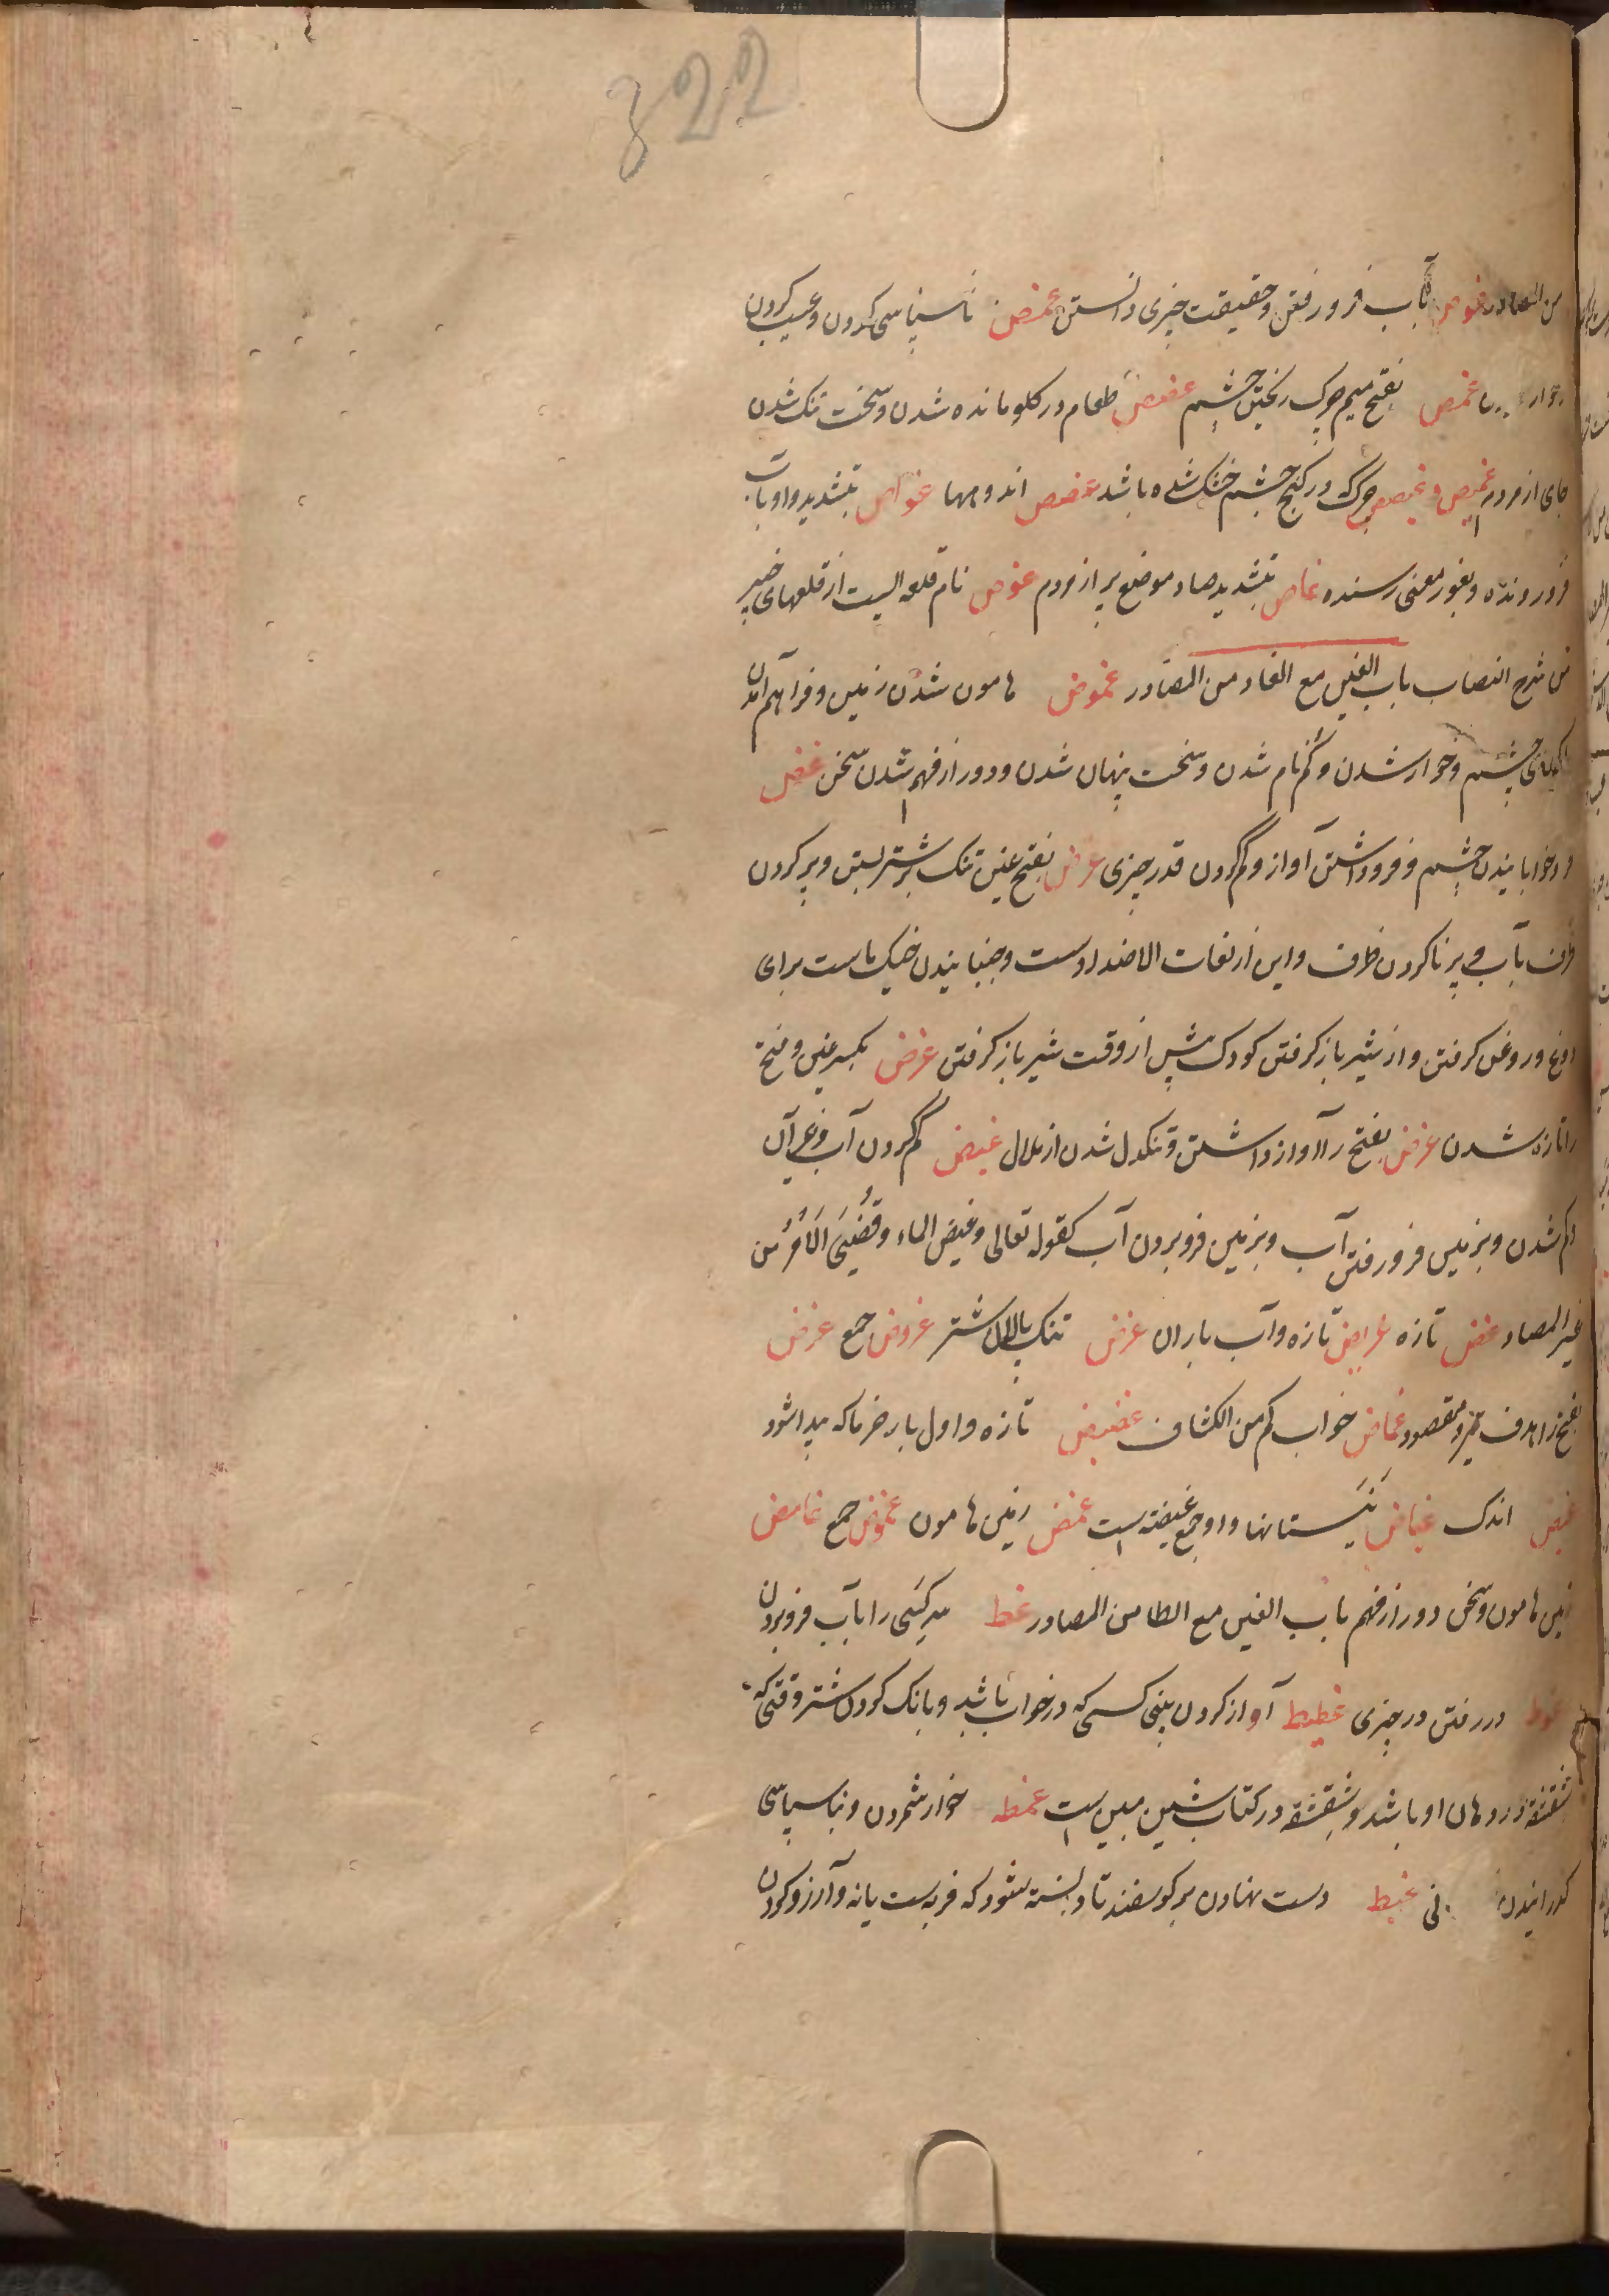 322
من المصادر غوص بآب فرو رفتن و حقیقت چیزی دانستن غمص ناسپاسی کردن و عیب کردن
غمص بفتح میم چرک ریختن چشم غصص طعام در کلو مانده شدن و سخت تنک شدن
جای از مردم غمیص و غمیصص چرک که در کنج چشم خشک شده باشد غصص اندوهها غواص بتشدید واو بآب
فرو رونده و بغور معنی رسنده غاص بتشدید صاد موضع پر از مردم غوص نام قلعه ایست از قلعهای خیبر
من شرح النصاب باب الغین مع الضاد من المصادر غموض هامون شدن زمین و فراهم آمدن
چشم و خوار شدن و کم نام شدن و سخت پنهان شدن و دور از فهم شدن سخن غض
و در خوابانیدن چشم و فرو داشتن آواز و کم کردن قدر چیزی غرض بفتح غین تنک بر شتر بستن و پر کردن
ظرف بآب و پر نا کردن ظرف و این از لغات الاضداد ست و جنبانیدن خیک ماست برای
دوغ و روغن کرفتن و از شیر باز کرفتن کودک پیش از وقت شیر باز کرفتن غرض بکسر غین و فتح
را تازه شدن غرض بفتح را آواز داشتن و تنکدل شدن از ملال غیض کم کردن آب و غیر آن
و کم شدن و بزمین فرو رفتن آب و بزمین فرو بردن آب کقوله تعالی وغیض الماء وقُضِیَ الاَمْرُ من
غیر المصادر غض تازه غریض تازه و آب باران غرض تنک پالان شتر غروض جمع غرض
بفتح را هدف تیر و مقصود غماض خواب کم من الکشاف غضیض تازه و اول بار خرما که پیدا شود
غیض اندک غیاض نیستانها و او جمع غیضه است غمض زمین هامون غموض جمع غامض
زمین هامون و سخن دور از فهم باب الغین مع الطا من المصادر غط سر کسی را بآب فرو بردن
غوط در رفتن در چیزی غطیط آواز کردن بینی کسی که در خواب باشد و بانک کردن شتر وقتی که
شقشقه در دهان او باشد و شقشقه در کتاب شین مبین است غمط خوار شمردن و ناسپاسی
کذرانیدن غبط دست نهادن بر کوسفند تا دانسته شود که فربه ست یا نه و آرزو کردن